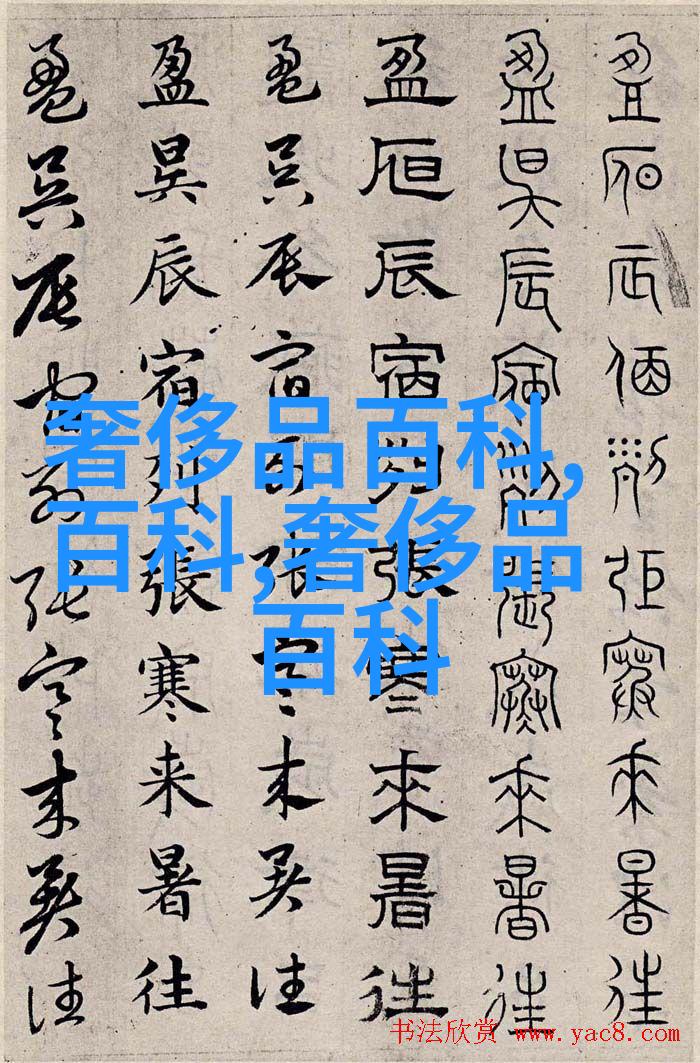 盈昃辰宿列張寒來暑往
盈昃辰宿列張寒來暑往
盈昃辰宿列張寒來暑往
盈昃辰宿列張寒来暑往
盈昃辰宿列張寒来暑往
盈昃辰宿列張寒来暑往
奢侈品百科,
百科,奢侈品
百科
书法欣赏 www.yac8.com